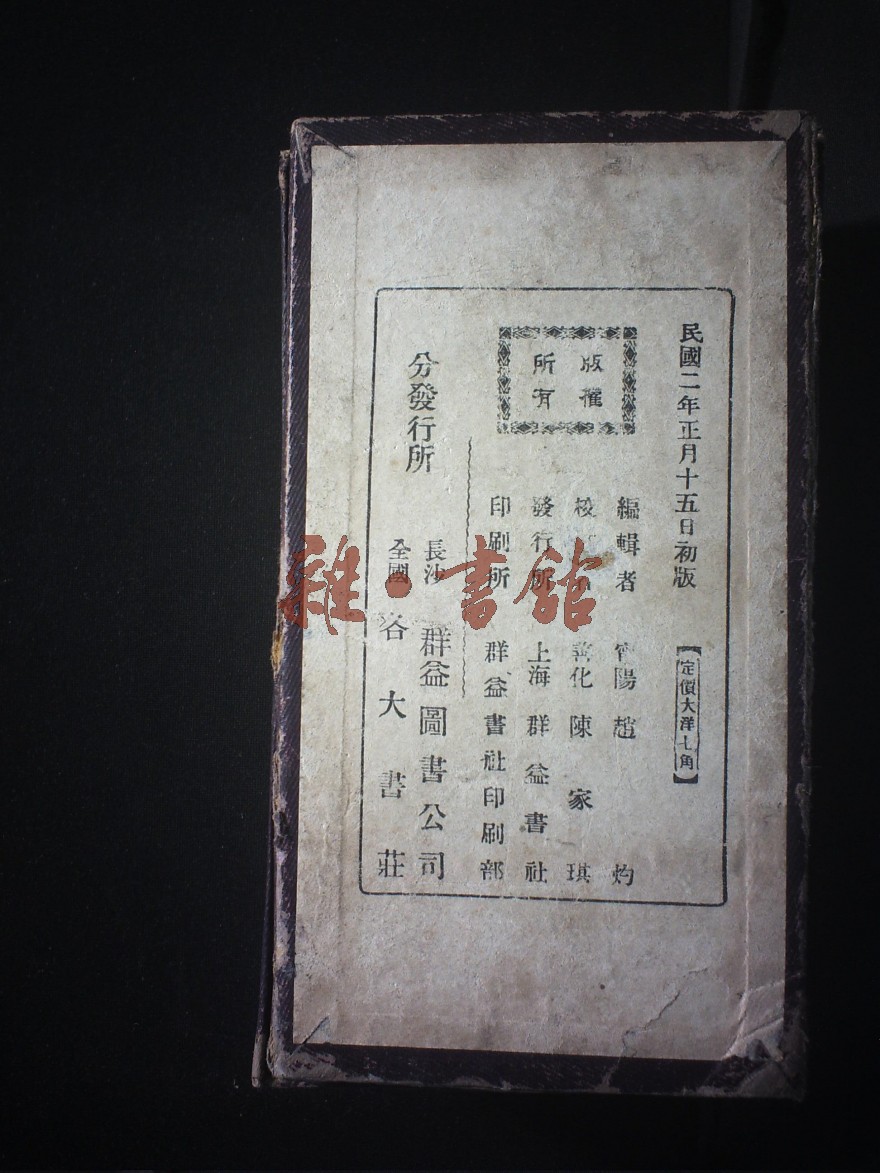 民國二年正月十五日初版
【定價大洋七角】
版權
所有
編輯者 甯陽趙 灼
校 者 善化陳家琪
發行所 上海群益書社
印刷所 群益書社印刷部
分發行所
長沙 群益圖書公司
全國 各大書莊
雜·書館